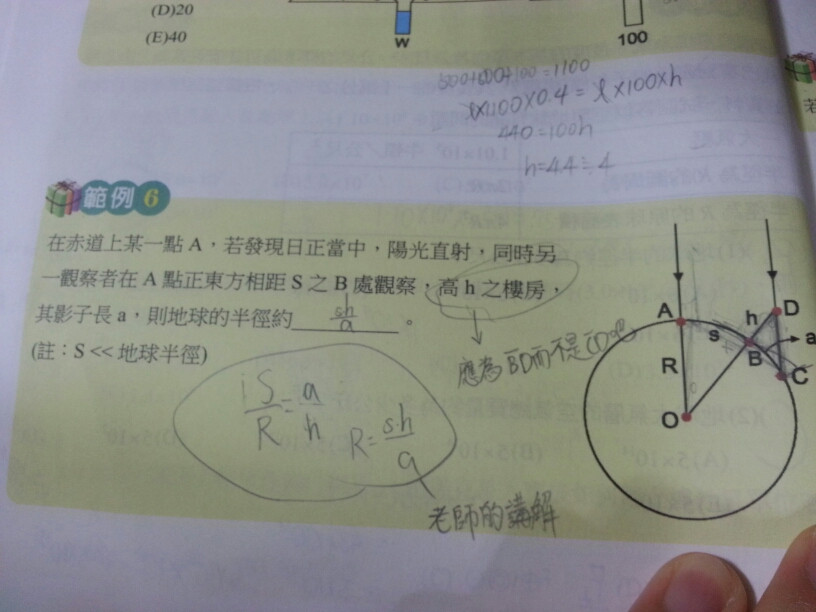 (D)20
(E)40
W
100
500+600+100=1100
1×1100×0.4=1×100×h
440=100h
h=4.4≒4
範例 6
在赤道上某一點 A，若發現日正當中，陽光直射，同時另
一觀察者在 A 點正東方相距 S 之 B 處觀察，高 h 之樓房，
其影子長 a，則地球的半徑約 sh/a 。
(註：S << 地球半徑)
應為BD而不是CD
S/R=a/h
R=s.h/a
老師的講解
A
D
s
h
B
a
R
C
O